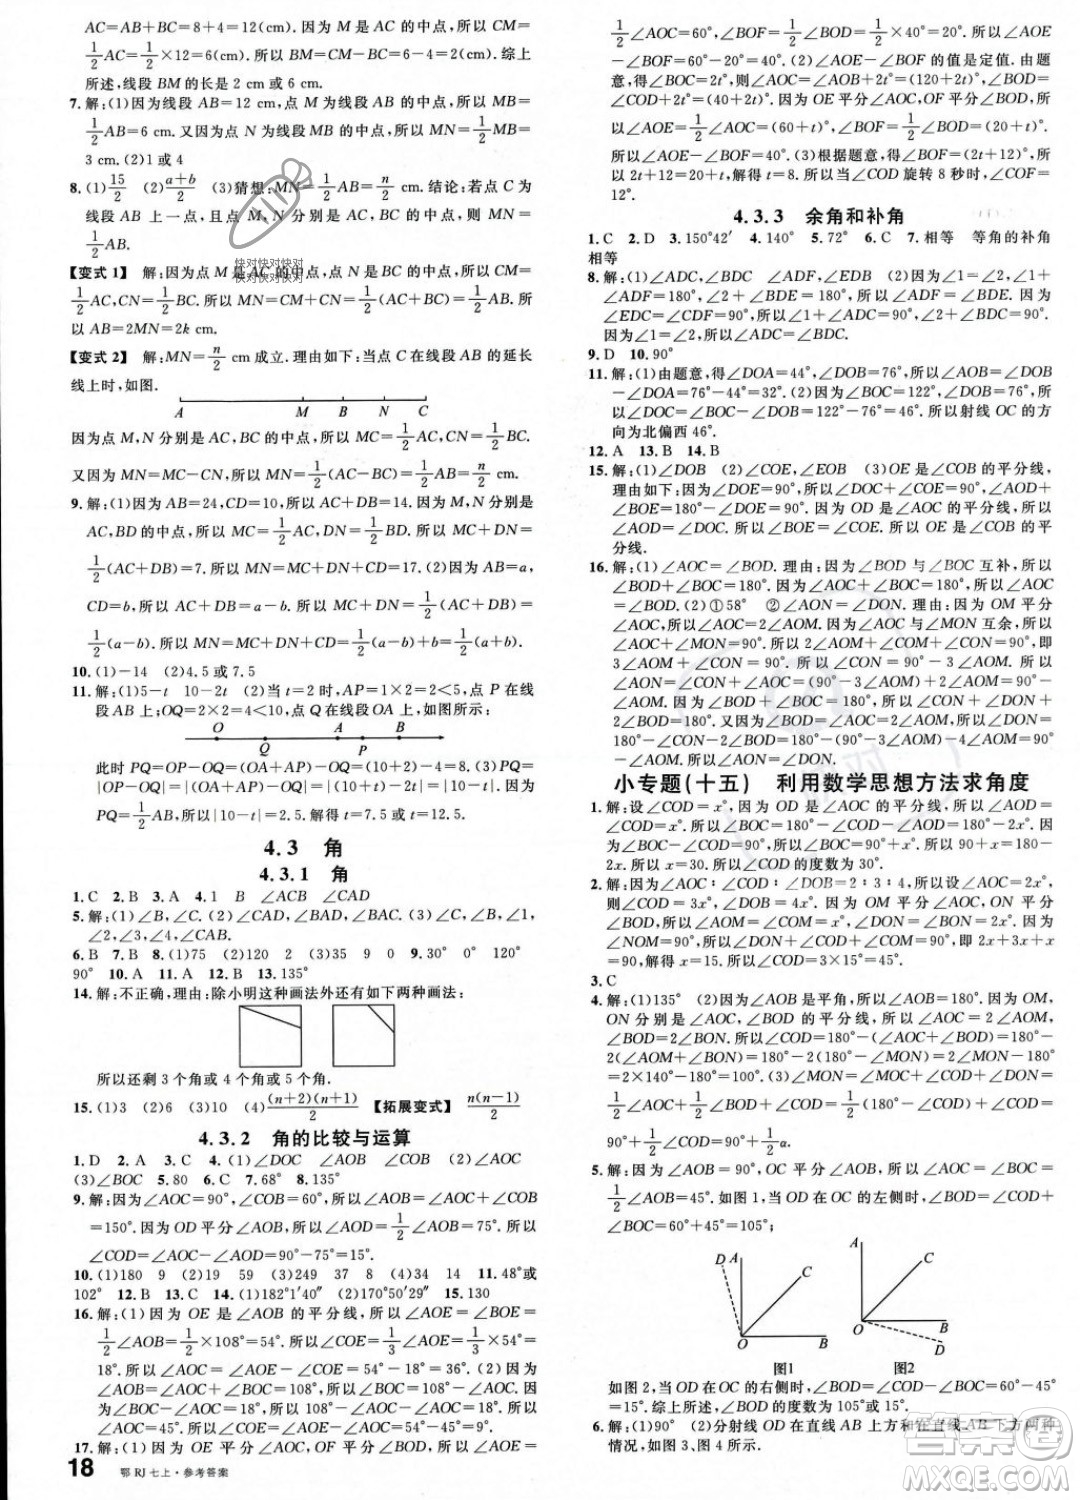 AC=AB+BC=8+4=12(cm).因为 M 是 AC 的中点,所以 CM=
1/2AC=1/2×12=6(cm).所以 BM=CM-BC=6-4=2(cm).综上
所述,线段 BM 的长是 2 cm 或 6 cm.
7.解:(1)因为线段 AB=12 cm,点 M 为线段 AB 的中点,所以 AM=
1/2AB=6 cm.又因为点 N 为线段 MB 的中点,所以 MN=1/2MB=
3 cm.(2)1 或 4
8.(1)15/2 (2)(a+b)/2 (3)猜想:MN=1/2AB=n/2 cm.结论:若点 C 为
线段 AB 上一点,且点 M、N 分别是 AC、BC 的中点,则 MN=
1/2AB.
【变式 1】 解:因为点 M 是 AC 的中点,点 N 是 BC 的中点,所以 CM=
1/2AC,CN=1/2BC.所以 MN=CM+CN=1/2AC+1/2BC=1/2AB.所
以 AB=2MN=2k cm.
【变式 2】 解:MN=n/2 cm 成立.理由如下:当点 C 在线段 AB 的延长
线上时,如图.
A M B N C
因为点 M,N 分别是 AC,BC 的中点,所以 MC=1/2AC,CN=1/2BC.
又因为 MN=MC-CN,所以 MN=1/2(AC-BC)=1/2AB=n/2 cm.
9.解:(1)因为 AB=24,CD=10,所以 AC+DB=14.因为 M,N 分别是
AC,BD 的中点,所以 MC=1/2AC,DN=1/2BD.所以 MC+DN=
1/2(AC+DB)=7.所以 MN=MC+DN+CD=17.(2)因为 AB=a,
CD=b,所以 AC+DB=a-b.所以 MC+DN=1/2(AC+DB)=
1/2(a-b).所以 MN=MC+DN+CD=1/2(a-b)+b=1/2(a+b).
10.(1)-14 (2)4.5 或 7.5
11.解:(1)5-t 10-2t (2)当 t=2 时,AP=1×2=2<5,点 P 在线
段 AB 上;OQ=2×2=4<10,点 Q 在线段 OA 上,如图所示:
O Q A P B
此时 PQ=OP-OQ=(OA+AP)-OQ=(10+2)-4=8.(3)PQ=
|OP-OQ|=|(OA+AP)-OQ|=|(10+t)-2t|=|10-t|.因为
PQ=1/2AB,所以|10-t|=2.5.解得 t=7.5 或 t=12.5.
4.3 角
4.3.1 角
1.C 2.B 3.A 4.1 B ∠ACB ∠CAD
5.解:(1)∠B,∠C.(2)∠CAD,∠BAD,∠BAC.(3)∠B,∠C,∠1,
∠2,∠3,∠4,∠CAB.
6.B 7.B 8.(1)75 (2)120 2 (3)35 9 0 9.30° 0° 120°
90° 10.A 11.A 12.B 13.135°
14.解:不正确,理由:除小明这种画法外还有如下两种画法:
所以还剩 3 个角或 4 个角或 5 个角.
15.(1)3 (2)6 (3)10 (4)(n+2)(n+1)/2 【拓展变式】 n(n-1)/2
4.3.2 角的比较与运算
1.D 2.A 3.C 4.(1)∠DOC ∠AOB ∠COB (2)∠AOC
(3)∠BOC 5.80 6.C 7.68° 8.135°
9.解:因为∠AOC=90°,∠COB=60°,所以∠AOB=∠AOC+∠COB
=150°.因为 OD 平分∠AOB,所以∠AOD=1/2∠AOB=75°.所以
∠COD=∠AOC-∠AOD=90°-75°=15°.
10.(1)180 9 (2)19 51 (3)249 37 11 (4)34 14 11.48°或
102° 12.B 13.C 14.(1)182°1′40″ (2)170°50′29″ 15.130
16.解:(1)因为 OE 是∠AOB 的平分线,所以∠AOE=∠BOE=
1/2∠AOB=1/2×108°=54°.所以∠COE=1/3∠AOE=1/3×54°=
18°.所以∠AOC=∠AOE-∠COE=54°-18°=36°.(2)因为
∠AOC+∠AOB+∠BOE+∠AOE+∠COE+∠BOC=
2∠AOB+2∠AOB=4∠AOB... 
17.解:(1)因为∠AOC=120°,OF 平分∠AOC,所以∠AOF=
18 鄂 RJ 七上·参考答案
1/2∠AOC=60°,∠BOF=1/2∠BOD=1/2×40°=20°.所以∠AOE
-∠BOF=60°-20°=40°.(2)∠AOE-∠BOF 的值是定值.由题
意,得∠BOC=∠AOB+2t°,则∠AOC=∠AOB+2t°=(120+2t)°,
∠BOD=∠COD+2t°=(40+2t)°.因为 OE 平分∠AOC,OF 平分∠BOD,所
以∠AOE=1/2∠AOC=(60+t)°,∠BOF=1/2∠BOD=(20+t)°.
所以∠AOE-∠BOF=40°.(3)根据题意,得∠BOF=(2t+12)°,
所以 2t+12=20+t,解得 t=8.所以当∠COD 旋转 8 秒时,∠COF=
12°.
4.3.3 余角和补角
1.C 2.D 3.150°42′ 4.140° 5.72° 6.C 7.相等 等角的补角
相等
8.解:(1)∠ADC,∠BDC ∠ADF,∠EDB (2)因为∠1+
∠ADF=180°,∠2+∠BDE=180°,所以∠ADF=∠BDE.因为
∠EDC=∠CDF=90°,所以∠1+∠ADC=90°,∠2+∠BDC=90°.
因为∠1=∠2,所以∠ADC=∠BDC.
9.D 10.90°
11.解:(1)由题意,得∠DOA=44°,∠DOB=76°,所以∠AOB=∠DOB
-∠DOA=76°-44°=32°.(2)因为∠BOC=122°,∠DOB=76°,所
以∠DOC=∠BOC-∠DOB=122°-76°=46°.所以射线 OC 的方
向为北偏西 46°.
12.A 13.B 14.B
15.解:(1)∠DOB (2)∠COE,∠EOB (3)OE 是∠COB 的平分线,
理由如下:因为∠DOE=90°,所以∠DOC+∠COE=90°,∠AOD+
∠BOE=180°-∠DOE=90°.因为 OD 是∠AOC 的平分线,所以
∠AOD=∠DOC.所以∠BOE=∠COE.所以 OE 是∠COB 的平
分线.
16.解:(1)∠AOC=∠BOD.理由:因为∠BOD 与∠BOC 互补,所以
∠BOD+∠BOC=180°.因为∠AOC+∠BOC=180°,所以∠AOC=
∠BOD.(2)①58° ②∠AON=∠DON.理由:因为 OM 平分
∠AOC,所以∠AOC=2∠AOM.因为∠AOM 与∠MON 互余,所以
∠AOM+∠MON=90°,即∠AOM+∠COM+∠CON=90°,即
2∠AOM+∠CON=90°.
180°.又因为∠BOD=∠AOC=2∠AOM,所以
∠DON=∠AON.
小专题(十五) 利用数学思想方法求角度
1.解:设∠COD=x°,因为 OD 是∠AOC 的平分线,所以∠AOC=
2∠COD=2x°.所以∠BOC=180°-∠AOC=180°-2x°.因为
∠BOD=90°,所以∠BOC=∠BOD+∠COD,所以 90+x=180-
2x.所以 x=30.所以∠COD 的度数为 30°.
2.解:因为∠AOC∶∠COD∶∠DOB=2∶3∶4,所以设∠AOC=
2x°,∠COD=3x°,∠DOB=4x°.因为 OM 平分∠AOC,ON 平分
∠BOD,所以∠AOM=∠COM=x°,∠DON=∠BON=2x°.因为
∠NOM=90°,所以∠COM+∠COD+∠DON=90°,即 2x+3x+x
=90.所以 x=15.所以∠COD=3×15°=45°.
3.C
4.解:(1)135° (2)因为∠AOB 是平角,所以∠AOB=180°.因为 OM,
ON 分别是∠AOC,∠BOD 的平分线,所以∠AOC=2∠MOC,
∠BOD=2∠DON.所以∠COD=180°-(∠AOC+∠BOD)=180°-
2(∠MOC+∠DON)=180°-2(∠MON-∠COD)=180°-
2×140°+2∠COD,所以∠COD=100°.
(3)∠MON=∠MOC+∠COD+∠DON=
1/2∠AOC+∠COD+1/2∠BOD=1/2(180°-∠COD)+∠COD=
90°+1/2∠COD=90°+1/2α.
5.解:因为∠AOB=90°,OC 平分∠AOB,所以∠AOC=∠BOC=
1/2∠AOB=45°.如图 1,当 OD 在 OC 的左侧时,∠BOD=∠COD+
∠BOC=60°+45°=105°;
A D C O B
图1
A C O B D
图2
如图 2,当 OD 在 OC 的右侧时,∠BOD=∠COD-∠BOC=60°-45°
=15°.综上所述,∠BOD 的度数为 105°或 15°.
6.解:(1)90° (2)分射线 OD 在直线 AB 上方和在直线 AB 下方两种
情况,如图 3、图 4 所示.
快对快对快对
快对快对快对